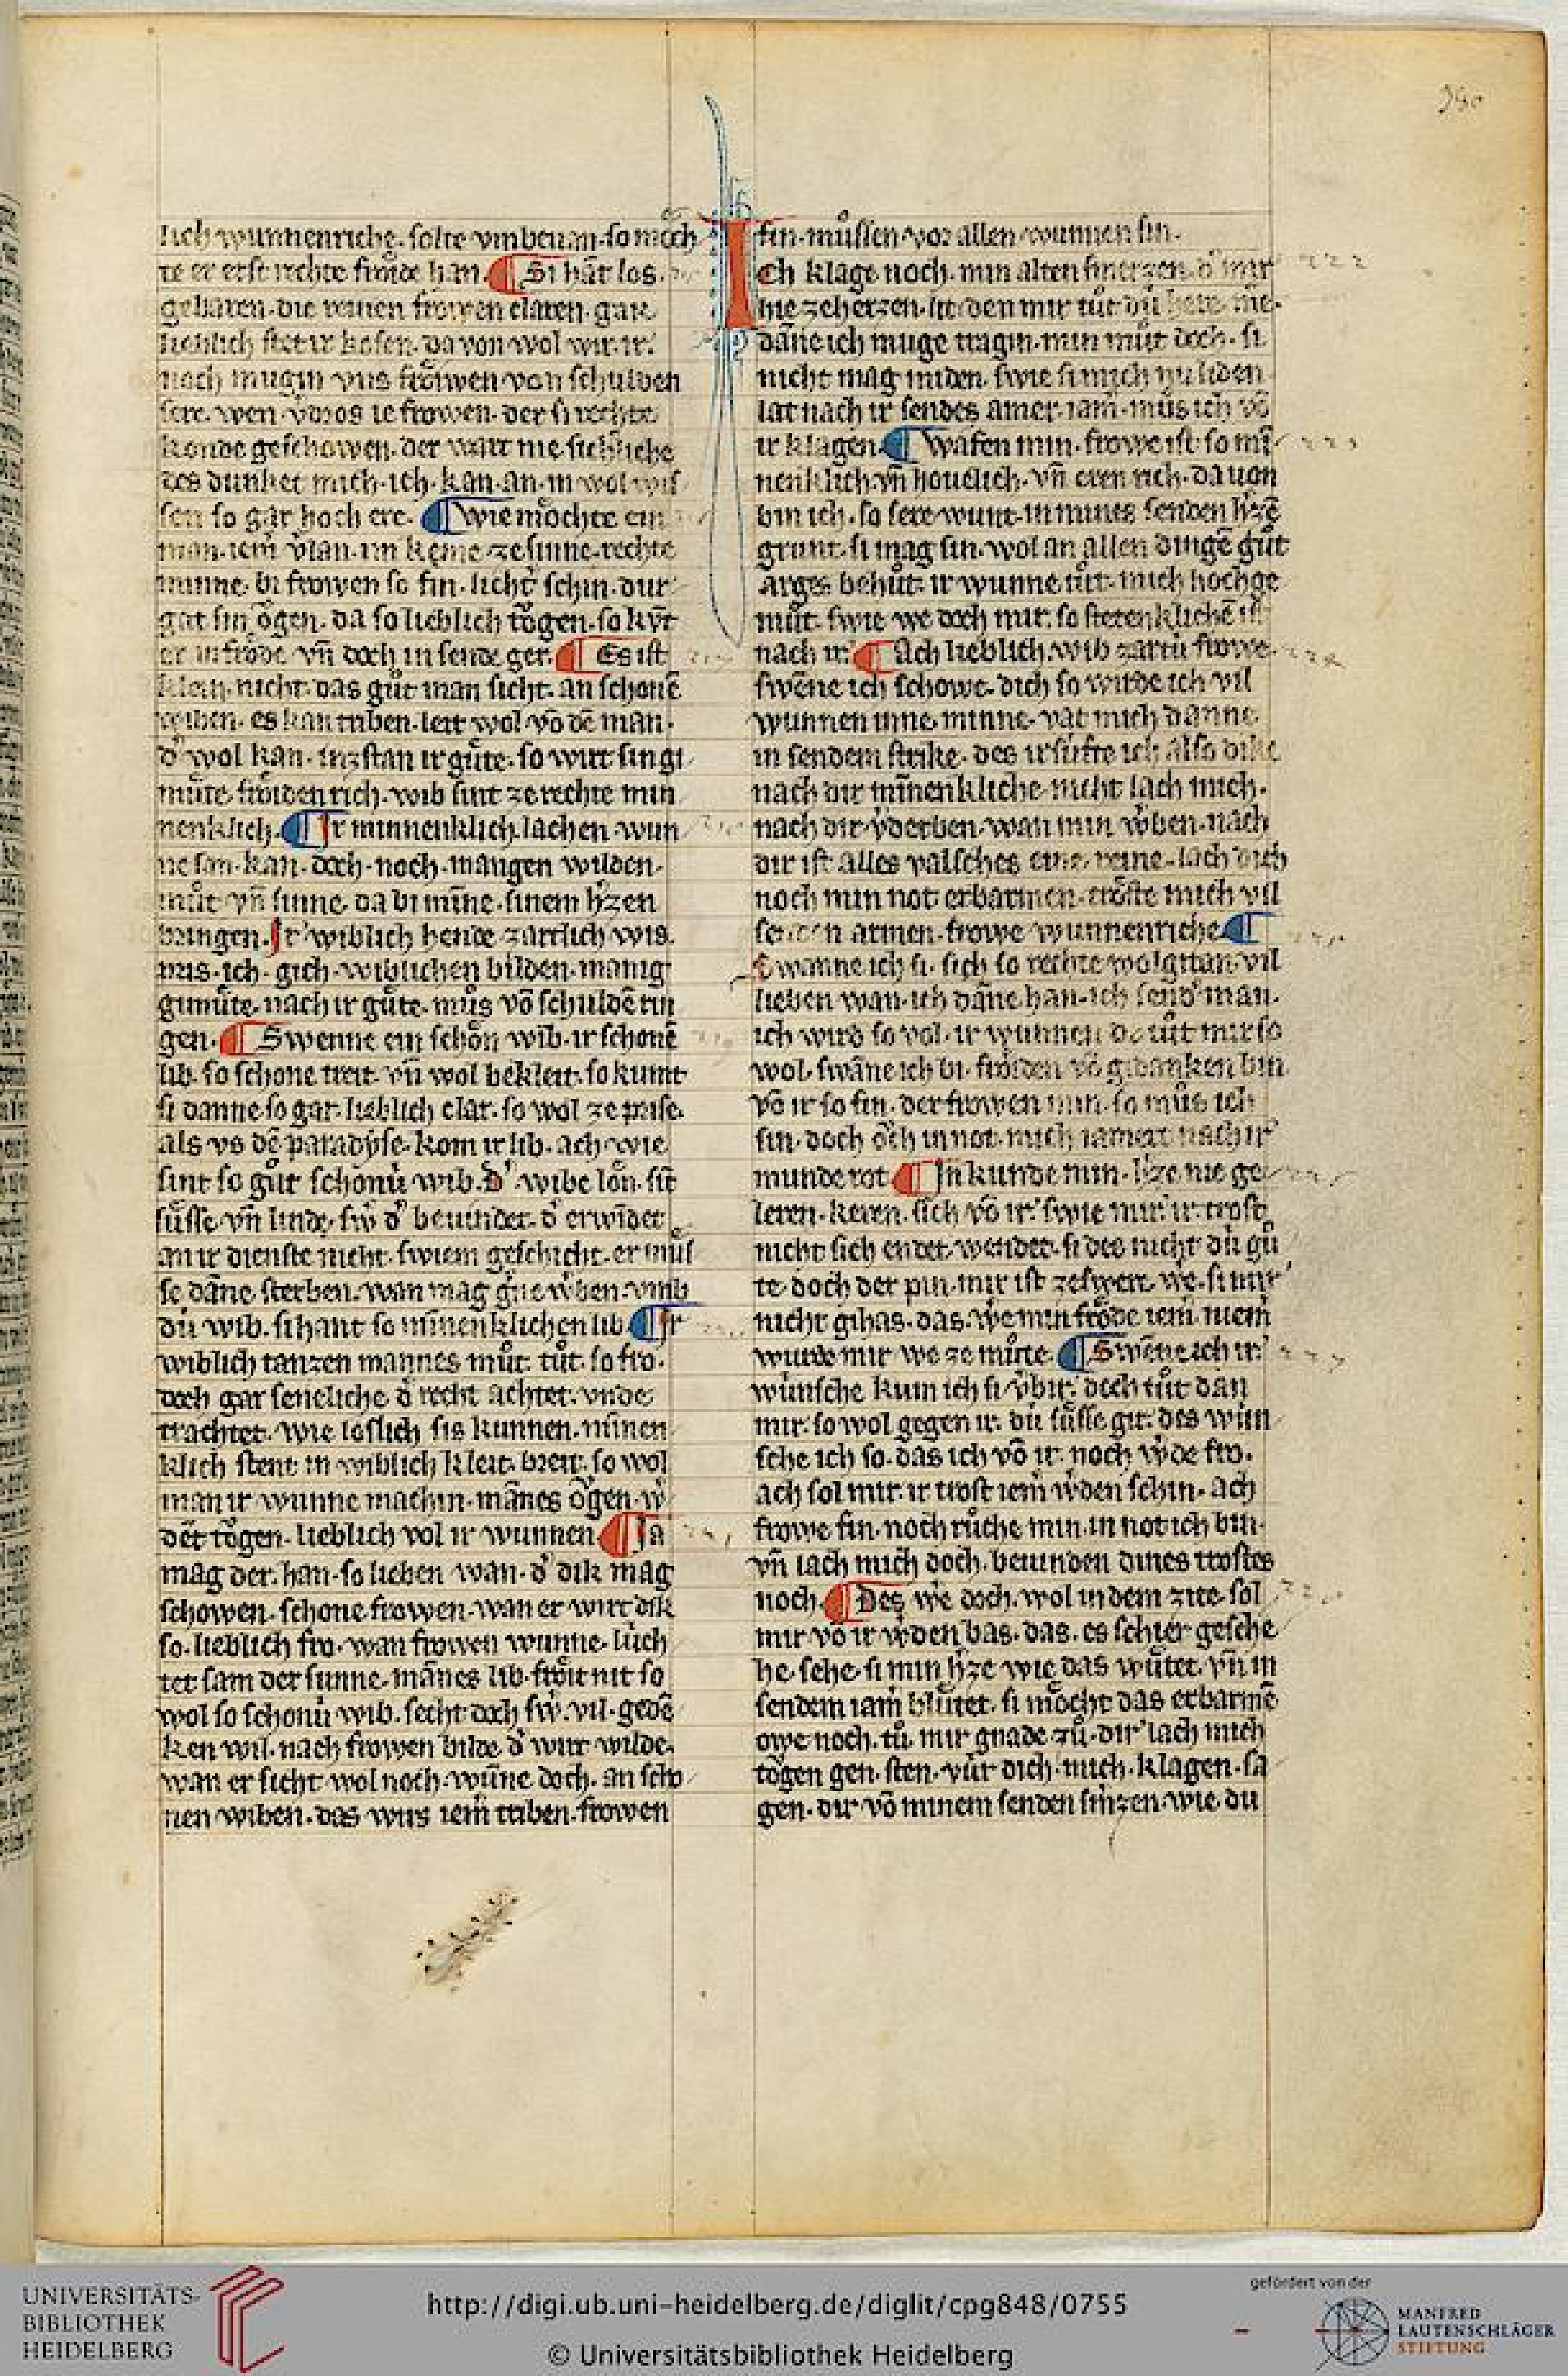 380
lich wunnenriche. solte vmbevan. so moͤch
te er erst rechte froͤide han. Si hat los.
gebaren. die reinen frowen claren. gar
lieblich stet ir kosen. da von wol wir. ir.
noch mugin vns froͤiwen von schulden
sere. wen vdros ie frowen. der si rechte
konde geschowen. der wart nie. sicherliche
des dunket mich. ich. kan. an. in wol wis
sen so gar hoch ere. wie moͤchte ein
man. iem̄ v̓lan. im keme. ze sinne. rechte
minne. bi frowen so fin. licht schin. dur
gat sin oͮgen. da so lieblich toͮgen. so kvt
er in froͤde vn̄ doch in sende ger. Es ist
klein. nicht. das guͦt man sicht. an schonē
wiben. es kan triben. leit wol. vō dē man.
d̓ wol kan. inzstan ir guͤte. so wirt sin gi
muͤte. froͤidenrich. wib sint ze rechte min
nenklich. Ir minnenklich. lachen wun
ne san. kan. doch. noch. mangen wilden.
muͦt vn̄ sinne. da bi mīne. sinem hzen
bringen. Ir wiblich hende zartlich wis.
pris. ich. gich. wiblichen bilden. manig
gimuͤte. nach ir guͤte. muͦs vō schuldē rin
gen. Swenne ein schoͤn wib. ir schonē
lib. so schone treit. vn̄ wol bekleit. so kumt
si danne. so gar. lieblich clar. so wol ze prise.
als vs dē paradyse. kom ir lib. ach wie
sint so guͦt schoͤnu̓ wib. d̓ wibe lon. sit
suͤsse vn̄ linde. sw̓ d̓ bevindet. d̓ erwīdet
an ir dienste nicht. swiem geschicht. er muͦs
se dāne sterben. wan mag gn̓e w̓ben. vmb
du̓ wib. si hant so mīnenklichen lib. Ir
wiblich tanzen mannes muͦt. tuͦt. so fro.
doch gar seneliche. d̓ recht achtet. vnde
trachtet. wie loslich sis kunnen. minen
klich stent in wiblich kleit. breit. so wol
man ir wunne machin. mānes oͮgen. w̓
det toͮgen. lieblich vol ir wunnen. Ia
mag der. han. so lieben wan. d̓ dik mag
schowen. schone frowen. wan er wirt dik
so. lieblich fro. wan frowen wunne. luͤch
tet sam der sunne. mānes lib. froͤit nit so
wol so schoͤnu̓ wib. secht doch sw̓. vil. gedē
ken wil. nach frowen bilde. d̓ wirt wilde.
wan er sicht wol noch. wūne doch. an scho
nen wiben. das wirs iem̄ triben. frowen
sin. muͤssen vor allen wunnen sin.
Ich klage noch. min alten smerzen. d̓ mir
nie ze herzen. leiden mir tuͦt du̓ here. me.
dāne ich muge tragin. min muͦt doch. si
nicht mag miden. swie si mich nu liden
lat nach ir sendes amer. iam̄. muͦs ich vō
ir klagen. wafen min. frowe ist so mī
nenklich. vn̄ houelich. vn̄ eren rich. da von
bin ich. so sere wunt. in mines senden hzē
grunt. si mag sin. wol an allen dingē guͦt
arges behuͦt. ir wunne tuͦt. mich hochge
muͦt. swie we doch mir. so stetenklichē ist
nach ir. Ach lieblich. wib zartu̓ frowe.
swēne ich schowe. dich so wirde ich vil
wunnen inne. minne. vat mich danne.
in sendem strike. des irsufte ich also dike
nach dir mīnenkliche. nicht lach mich.
nach dir. v̓derben. wan min w̓ben. nach
dir ist alles valsches eine. reine. lach dich
noch min not erbarmen. troͤste mich vil
senden armen. frowe wunnenriche.
Swanne ich si. sich so rechte wol gitan. vil
lieben wan. ich dāne. han. ich send̓ man.
ich wird so vol. ir wunnen. de tuͦt mir so
wol. swāne ich bi. froͤiden vō gidanken bin
vō ir so fin. der frowen min. so muͦs ich
sin. doch oͮch in not. mich iamert nach ir
munde rot. In kunde min. hze nie ge
leren. keren. sich vō ir. swie mir ir trost
nicht sich endet. wendet. si des nicht du̓ guͤ
te. doch der pin. mir ist ze swere. we. si mir
nicht gihas. das. we min froͤde iem̄. niem̄
wurde mir we ze muͦte. Swēne ich ir.
wunsche kum ich si v̓bir. doch tuͦt dan
mir. so wol gegen ir. du̓ suͤsse gir. des wun
sche ich so. das ich vō ir noch w̓de fro.
ach sol mir. ir trost iem̄ w̓den schin. ach
frowe fin. noch ruͦche min. in not ich bin.
vn̄ lach mich doch. bevinden dines trostes
noch. Des we doch. wol in dem zite. sol
mir vō ir w̓den bas. das. es schier gesche
he. sehe. si min hze wie das wuͤtet. vn̄ in
sendem iam̄ bluͤtet. si mocht das erbarmē
owe noch. tuͦ. mir gnade. zuͦ. dir lach mich
toͮgen gen. sten. vúr dich. mich. klagen. sa
gen. dir vō minem senden smzen. wie. du
UNIVERSITÄTS-
BIBLIOTHEK
HEIDELBERG
http://digi.ub.uni-heidelberg.de/diglit/cpg848/0755
© Universitätsbibliothek Heidelberg
gefördert von der
MANFRED
LAUTENSCHLÄGER
STIFTUNG